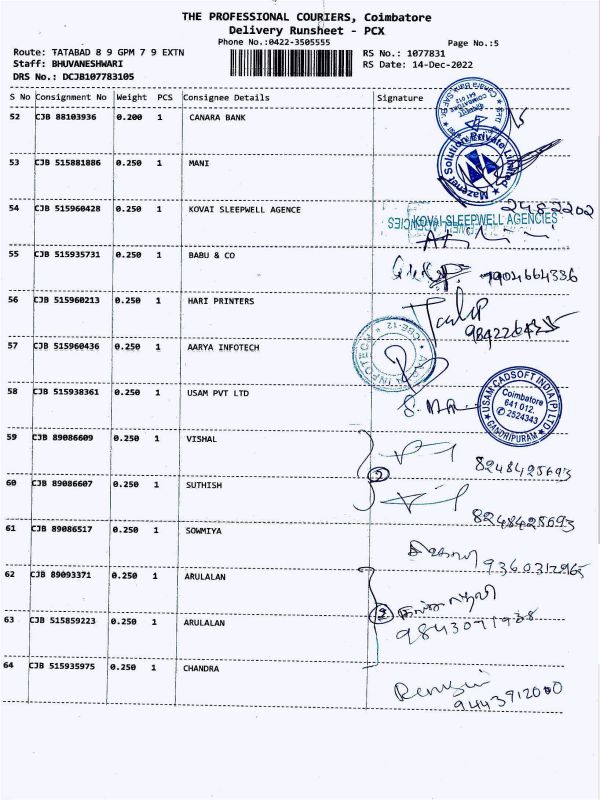 THE PROFESSIONAL COURIERS, Coimbatore
Delivery Runsheet - PCX
Phone No.:0422-3505555
Page No.:5
Route: TATABAD 8 9 GPM 7 9 EXTN
RS No.: 1077831
Staff: BHUVANESHWARI
RS Date: 14-Dec-2022
DRS No.: DCJB107783105
S No Consignment No Weight PCS Consignee Details Signature
52 CJB 88103936 0.200 1 CANARA BANK
Canara Bank
COIMBATORE
641 012
53 CJB 515881886 0.250 1 MANI
Mazenet Solution Private Limited
54 CJB 515960428 0.250 1 KOVAI SLEEPWELL AGENCE
KOVAI SLEEPWELL AGENCIES
55 CJB 515935731 0.250 1 BABU & CO
7904664336
56 CJB 515960213 0.250 1 HARI PRINTERS
57 CJB 515960436 0.250 1 AARYA INFOTECH
CBE-12
58 CJB 515938361 0.250 1 USAM PVT LTD
USAM CADSOFT INDIA (P) LTD
Coimbatore
641 012.
2524343
GANDHIPURAM
59 CJB 89086609 0.250 1 VISHAL
8248428693
2
60 CJB 89086607 0.250 1 SUTHISH
8248428693
61 CJB 89086517 0.250 1 SOWMIYA
9360312965
62 CJB 89093371 0.250 1 ARULALAN
2
63 CJB 515859223 0.250 1 ARULALAN
9843077938
64 CJB 515935975 0.250 1 CHANDRA
9443912000